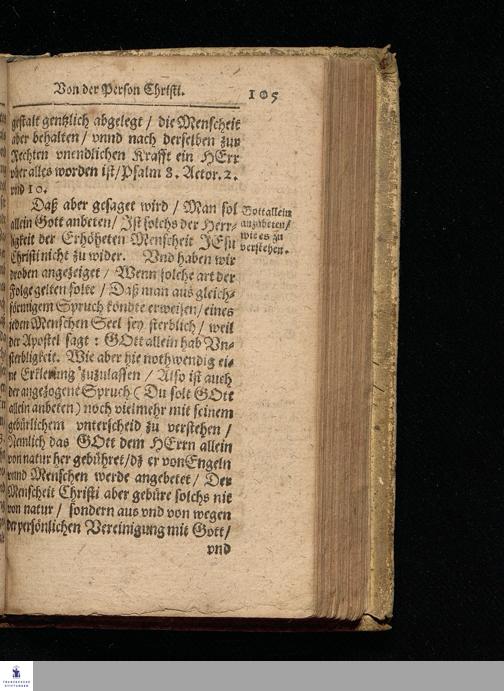 Von der Person Christi. 105
gestalt gentzlich abgelegt / die Menscheit
aber behalten / vnnd nach derselben zur
Rechten vnendlichen Krafft ein HErr
vber alles worden ist / Psalm 8. Actor. 2.
vnd 10.
Daß aber gesaget wird / Man sol
allein Gott anbeten / Ist solchs der Herr-
ligkeit der Erhöheten Menscheit JEsu
Christi nicht zu wider. Vnd haben wir
droben angezeiget / Wenn solche art der
Folge gelten solte / Daß man aus gleich-
förmigem Spruch köndte erweisen / eines
jeden Menschen Seel sey sterblich / weil
der Apostel sagt : GOtt allein hab Vn-
sterbligkeit. Wie aber hie nothwendig ei-
ne Erklerung zuzulassen / Also ist auch
der angezogene Spruch ( Du solt GOtt
allein anbeten ) noch vielmehr mit seinem
gebürlichem vnterscheid zu verstehen /
Nemlich das GOtt dem HErrn allein
von natur her gebühret / dz er von Engeln
vnnd Menschen werde angebetet / Der
Menscheit Christi aber gebüre solchs nit
von natur / sondern aus vnd von wegen
der persönlichen Vereinigung mit Gott /
vnd
Gott allein
anzubeten /
wie es zu
verstehen.
FRANCKESCHE
STIFTUNGEN